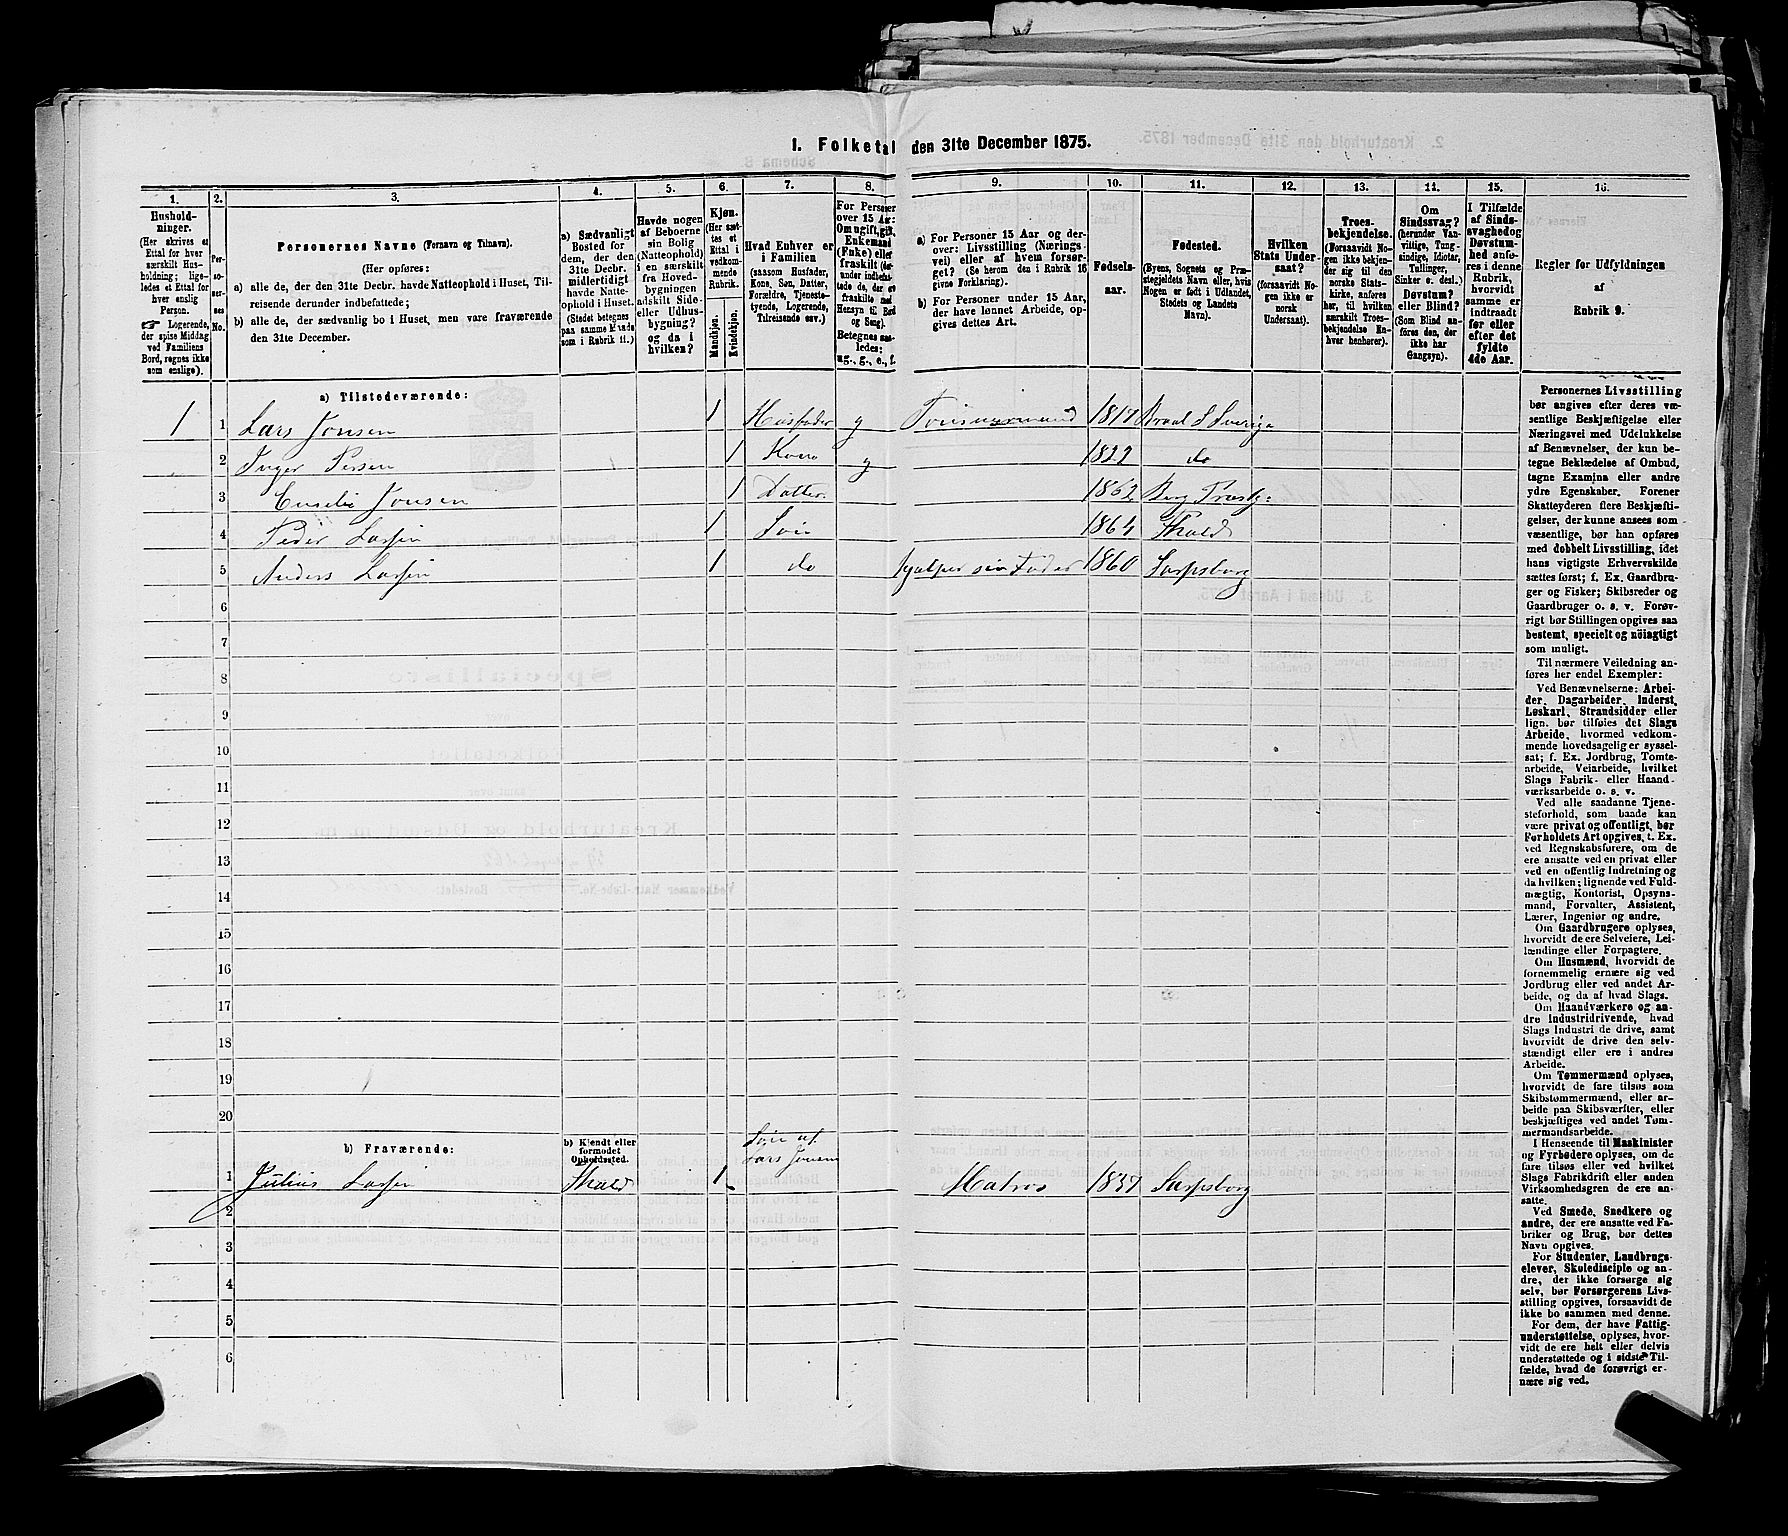 1. Folketal den 31te December 1875.
1. 2. 3. 4. 5. 6. 7. 8. 9. 10. 11. 12. 13. 14. 15. 16.
Hushold-
ninger.
(Her skrives et
Ettal for hver
særskilt Hus-
holdning; lige-
ledes et Ettal for
hver enslig
Person.
☞ Logerende,
der spise Middag
ved Familiens
Bord, regnes ikke
som enslige).
Per-
so-
ner-
nes
No.
Personernes Navne (Fornavn og Tilnavn).
(Her opføres:
a) alle de, der den 31te Decbr. havde Natteophold i Huset, Til-
reisende derunder indbefattede;
b) alle de, der sædvanlig bo i Huset, men vare fraværende
den 31te December.
a) Sædvanligt
Bosted for
dem, der den
31te Decbr.
midlertidigt
havde Natte-
ophold i Huset.
(Stedet betegnes
paa samme Maade
som i Rubrik 11.)
Havde nogen
af Beboerne
sin Bolig
(Natteophold)
i en særskilt
fra Hoved-
bygningen
adskilt Side-
eller Udhus-
bygning?
og da i
hvilken?
Kjøn.
(Her sæt-
tes et
Ettal i
vedkom-
mende
Rubrik.
Mandkjøn.
Kvindekjøn.
Hvad Enhver er
i Familien
(saasom Husfader,
Kone, Søn, Datter,
Forældre, Tjeneste-
tyende, Logerende,
Tilreisende osv.)
For Personer
over 15 Aar:
Om ugift, gift,
Enkemand
(Enke) eller
fraskilt
Betegnes saa-
ledes:
ug., g., e., f.
a) For Personer 15 Aar og der-
over: Livsstilling (Nærings-
vei) eller af hvem forsør-
get? (Se herom den i Rubrik 16
givne Forklaring).
b) For Personer under 15 Aar,
der have lønnet Arbeide, op-
gives dettes Art.
Fødsels-
aar.
Fødested.
(Byens, Sognets og Præ-
stegjeldets Navn eller, hvis
Nogen er født i Udlandet,
Stedets og Landets
Navn).
Hvilken
Stats Under-
saat?
(forsaavidt No-
gen ikke er
norsk
Undersaat).
Troes-
bekjendelse.
(Forsaavidt No-
gen ikke bekjen-
der sig til den
norske Stats-
kirke, anføres
her, til hvilken
særskilt Troes-
bekjendelse En-
hver henhører).
Om
Sindssvag?
(herunder Van-
vittige, Tung-
sindige, Idioter,
Tullinger,
Sinker o. desl.)
Døvstum?
eller Blind?
(Som Blind an-
føres den, der
ikke har
Gangsyn).
I Tilfælde
af Sinds-
svaghed og
Døvstum-
hed anfø-
res i denne
Rubrik,
hvorvidt
samme er
indtraadt
før eller
efter det
fyldte
4de Aar.
Regler for Udfyldningen
af
Rubrik 9.
a) Tilstedeværende:
1 1 Lars Jonsen 1 Husfader g 1817 Sverige
2 Inger Persen 1 Kone g 1822 do
3 Jonsen 1 Datter 1862 Berg
4 Peder Larsen 1 Søn 1864 Fhald
5 Anders Larsen 1 do hjælper sin Fader 1860 Sarpsborg
6
7
8
9
10
11
12
13
14
15
16
17
18
19
20
b) Fraværende:
b) Kjendt eller
formodet
Opholdssted.
Søn af
Lars Jonsen
1 Julius Larsen Fhald 1 Matros 1857 Sarpsborg
2
3
4
5
6
Personernes Livsstilling
bør angives efter deres væ-
sentlige Beskjæftigelse eller
Næringsvei med Udelukkelse
af Benævnelser, der kun be-
tegne Beklædelse af Ombud,
tagne Examina eller andre
ydre Egenskaber. Forener
Skatteyderen flere Beskjæfti-
gelser, der kunne ansees som
væsentlige, bør han opføres
med dobbelt Livsstilling, idet
hans vigtigste Erhvervskilde
sættes først; f. Ex. Gaardbru-
ger og Fisker; Skibsreder og
Gaardbruger o. s. v. Forøv-
rigt bør Stillingen opgives saa
bestemt, specielt og nøiagtigt
som muligt.
Til nærmere Veiledning an-
føres her endel Exempler:
Ved Benævnelserne: Arbei-
der, Dagarbeider, Inderst,
Løskarl, Strandsidder eller
lign. bør tilføies det Slags
Arbeide, hvormed vedkom-
mende hovedsagelig er syssel-
sat; f. Ex. Jordbrug, Tomte-
arbeide, Veiarbeide, hvilket
Slags Fabrik- eller Haand-
værksarbeide o. s. v.
Ved alle saadanne Tjene-
steforhold, som baade kan
være privat og offentligt, bør
Forholdets Art opgives, t. Ex.
ved Regnskabsførere, om de
ere ansatte ved en privat eller
ved en offentlig Indretning og
da hvilken; lignende ved Fuld-
mægtig, Kontorist, Opsyns-
mand, Forvalter, Assistent,
Lærer, Ingeniør og andre.
Om Gaardbrugere oplyses,
hvorvidt de ere Selveiere, Lei-
lændinge eller Forpagtere.
Om Husmænd, hvorvidt de
fornemmelig ernære sig ved
Jordbrug eller ved andet Ar-
beide, og da af hvad Slags.
Om Haandværkere og an-
dre Industridrivende, hvad
Slags Industri de drive, samt
hvorvidt de drive den selv-
stændigt eller ere i andres
Arbeide.
Om Tømmermænd oplyses,
hvorvidt de fare tilsøs som
Skibstømmermænd, eller ar-
beide paa Skibsværfter, eller
beskjæftiges ved andet Tøm-
mermandsarbeide.
I Henseende til Maskinister
og Fyrbødere oplyses, om de
fare tilsøs eller ved hvilket
Slags Fabrikdrift eller anden
Virksomhedsgren de ere an-
satte.
Ved Smede, Snedkere og
andre, der ere ansatte ved Fa-
briker og Brug, bør dettes
Navn opgives.
For Studenter, Landbrugs-
elever, Skoledisciple og an-
dre, der ikke forsørge sig
selv, bør Forsørgerens Livs-
stilling opgives, forsaavidt de
ikke bo sammen med denne.
For dem, der have Fattig-
understøttelse, oplyses, hvor-
vidt de ere helt eller delvis
understøttede og i sidste Til-
fælde, hvad de forøvrigt er-
nære sig ved.